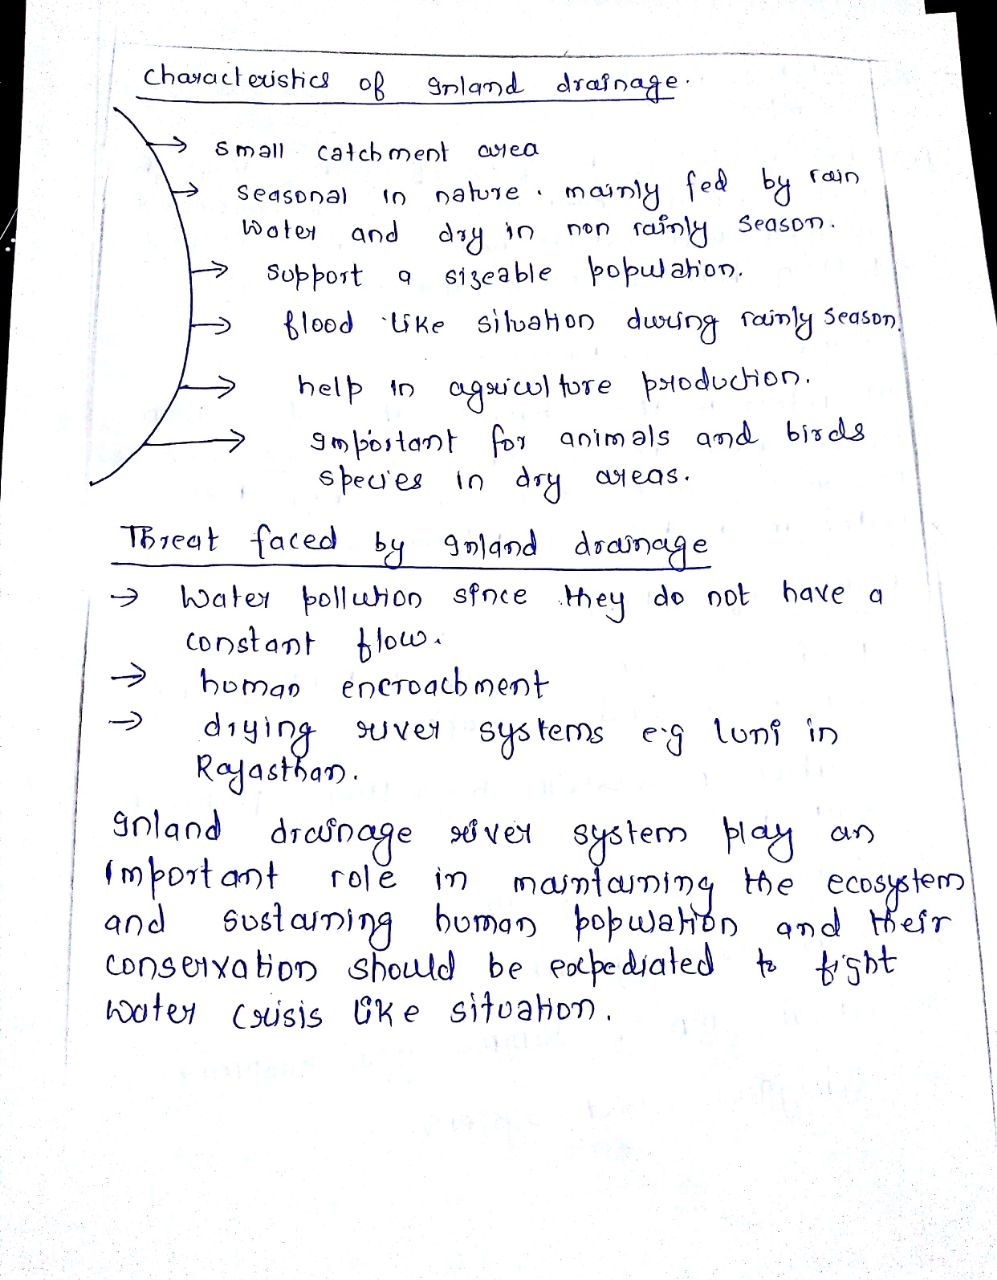 Characteristics of Inland drainage.
→ small catchment area
→ seasonal in nature. mainly fed by rain
water and dry in non rainly season.
→ support a sizeable population.
→ flood like situation during rainly season.
→ help in agriculture production.
→ Important for animals and birds
species in dry areas.
Threat faced by Inland drainage
→ Water pollution since they do not have a
constant flow.
→ human encroachment
→ drying river systems e.g luni in
Rajasthan.
Inland drainage river system play an
important role in maintaining the ecosystem
and sustaining human population and their
conservation should be expediated to fight
water crisis like situation.